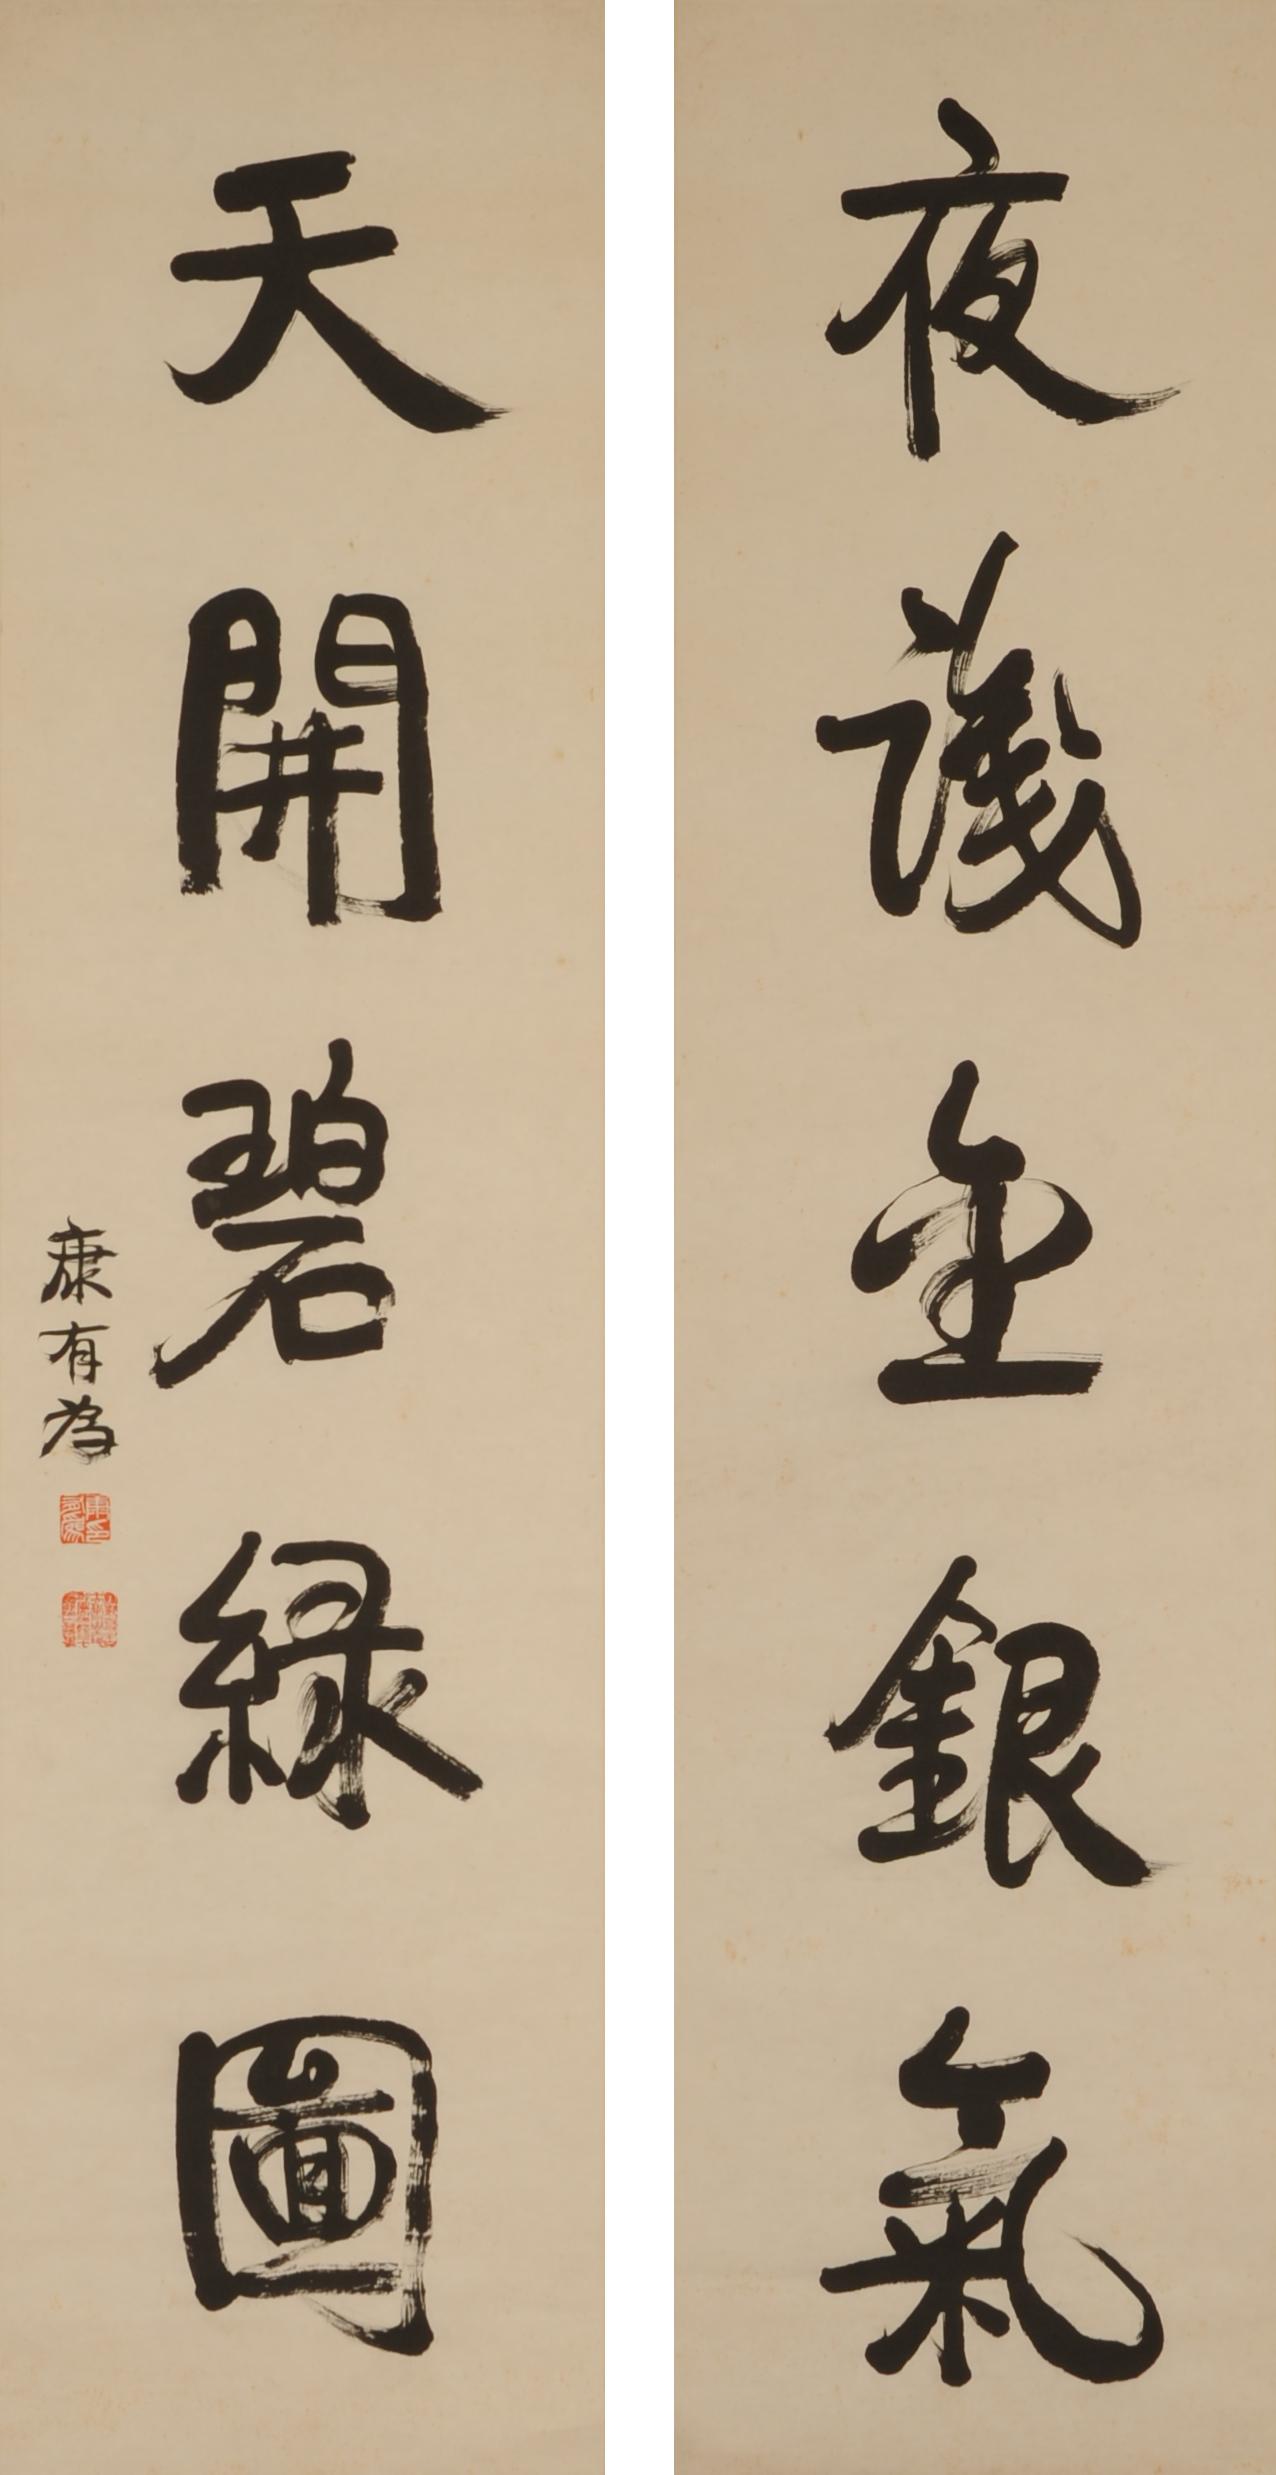 夜識金銀氣
天開碧緑圖
康有為